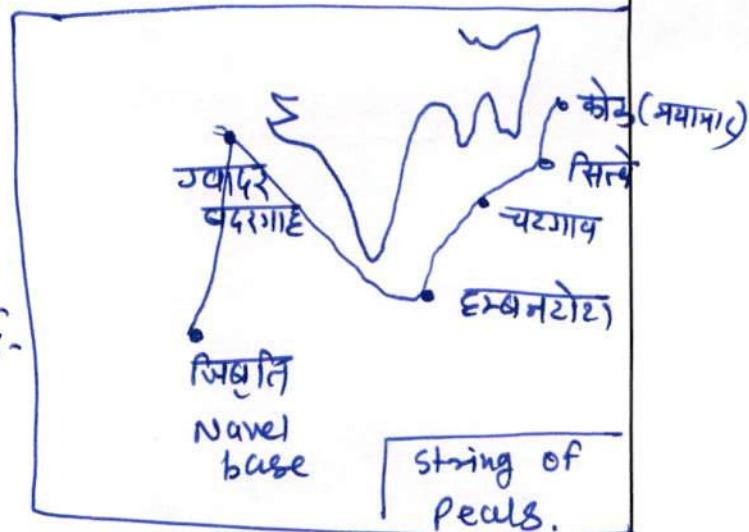 कोको (मयामार)
सित्वे
ग्वादर
बदरगाह
चटगाव
हम्बनटोटा
जिबुति
Navel
base
String of
Peals.